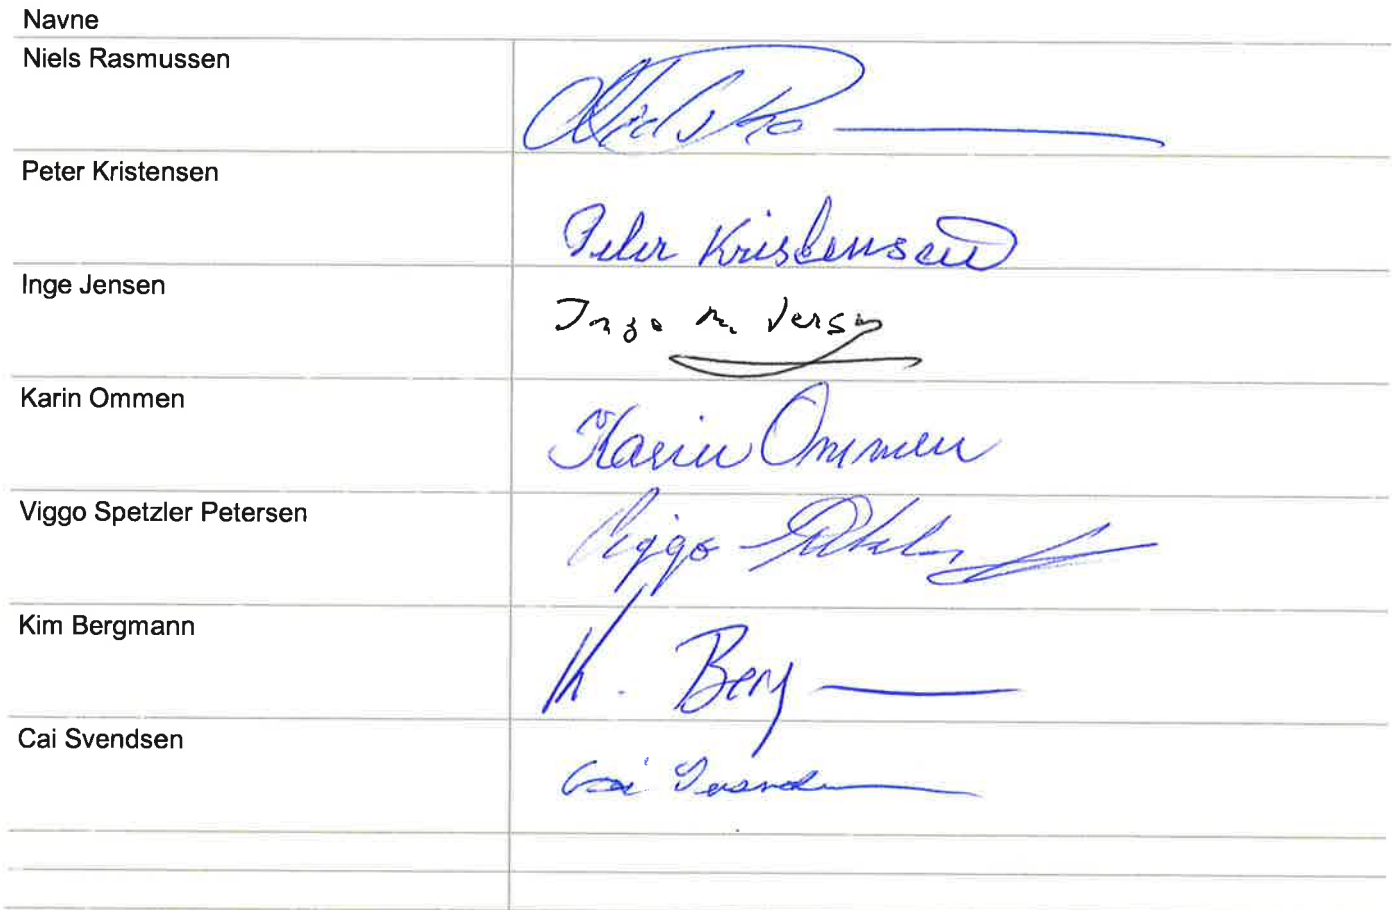 Navne
Niels Rasmussen
Peter Kristensen
Peter Kristensen
Inge Jensen
Inge M. Jensen
Karin Ommen
Karin Ommen
Viggo Spetzler Petersen
Viggo
Kim Bergmann
K. Berg
Cai Svendsen
Cai Svendsen